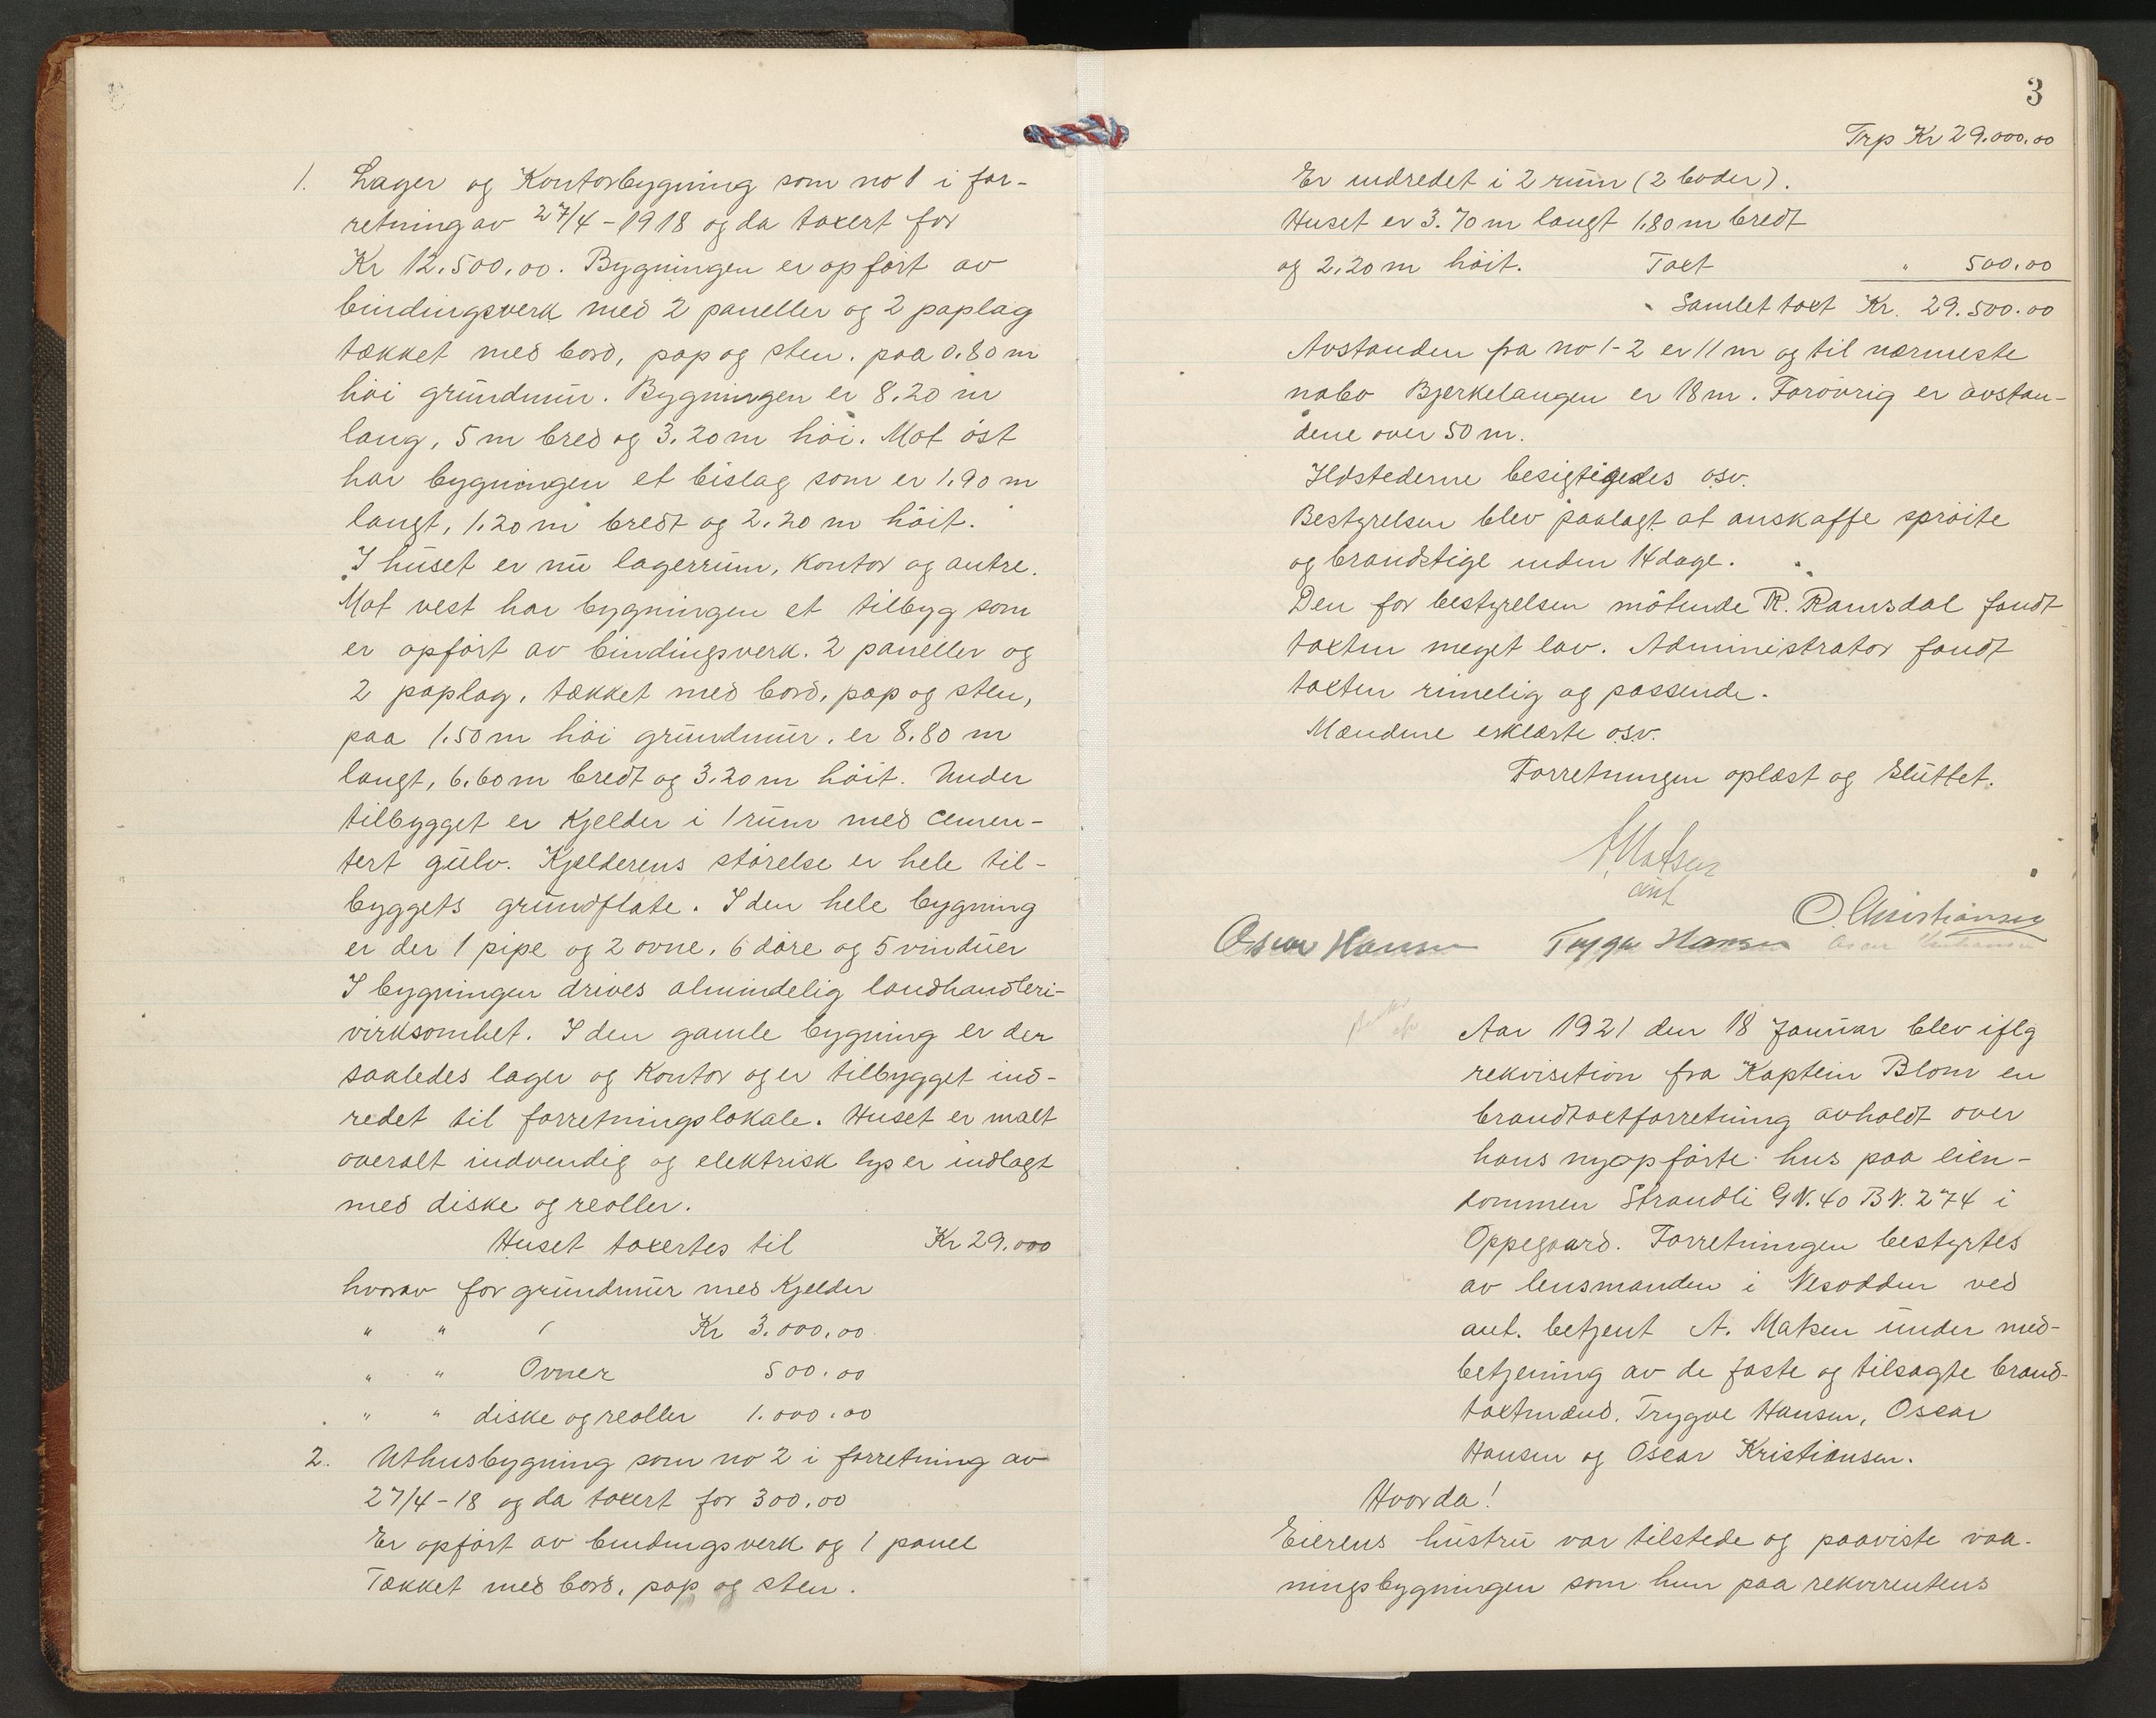 1. Lager og Kontorbygning som no 1 i for-
retning av 27/4-1918 og da taxert for
Kr 12.500.00. Bygningen er opført av
bindingsverk med 2 paneller og 2 paplag
tækket med bord, pap og sten. paa 0.80 m
høi grundmur. Bygningen er 8.20 m
lang, 5 m bred og 3.20 m høi. Mot øst
har bygningen et bislag som er 1.90 m
langt, 1.20 m bredt og 2.20 m høit.
I huset er nu lagerrum, kontor og antre.
Mot vest har bygningen et tilbyg som
er opført av bindingsverk. 2 paneller og
2 paplag, tækket med bord, pap og sten,
paa 1.50 m høi grundmur. er 8.80 m
langt, 6.60 m bredt og 3.20 m høit. Under
tilbygget er Kjelder i 1 rum med cemen-
tert gulv. Kjelderens størelse er hele til-
byggets grundflate. I den hele bygning
er der 1 pipe og 2 ovne, 6 døre og 5 vinduer
I bygningen drives almindelig landhandleri-
virksomhet. I den gamle bygning er der
saaledes lager og Kontor og er tilbygget ind-
redet til forretningslokale. Huset er malt
overalt indvendig og elektrisk lys er indlagt
med diske og reoller.
Huset taxertes til Kr 29.000
hvorav for grundmur med Kjelder
" " ( Kr 3.000.00
" " Ovner 500.00
" " diske og reoller 1.000.00
2. Uthusbygning som no 2 i forretning av
27/4-18 og da taxert for 300.00
Er opført av bindingsverk og 1 panel
Tækket med bord, pap og sten.
3
Trp Kr 29.000.00
Er indredet i 2 rum (2 boder).
Huset er 3.70 m langt 1.80 m bredt
og 2.20 m høit. Taxt " 500.00
Samlet taxt Kr. 29.500.00
Avstanden fra no 1-2 er 11 m og til nærmeste
nabo Bjerkelangen er 18 m. Forøvrig er avstan-
dene over 50 m.
Ildstederne besigtigedes osv.
Bestyrelsen blev paalagt at anskaffe sprøite
og brandstige inden 14 dage.
Den for bestyrelsen møtende R. Ramsdal fandt
taxten meget lav. Administrator fandt
taxten rimelig og passende.
Mændene erklærte osv.
Forretningen oplæst og Sluttet.
A. Matsen
aut
O. Christiansen
Oscar Hansen Trygve Hansen
Aar 1921 den 18 Januar blev iflg
rekvisition fra Kaptein Blom en
brandtaxtforretning avholdt over
hans nyopførte hus paa eien-
dommen Strandli GN. 40 BN. 274 i
Oppegaard. Forretningen bestyrtes
av lensmanden i Nesodden ved
aut. betjent A. Matsen under med-
betjening av de faste og tilsagte brand-
taxtmænd. Trygve Hansen, Oscar
Hansen og Oscar Kristiansen.
Hvorda!
Eierens hustru var tilstede og paaviste vaa-
ningsbygningen som hun paa rekvirentens